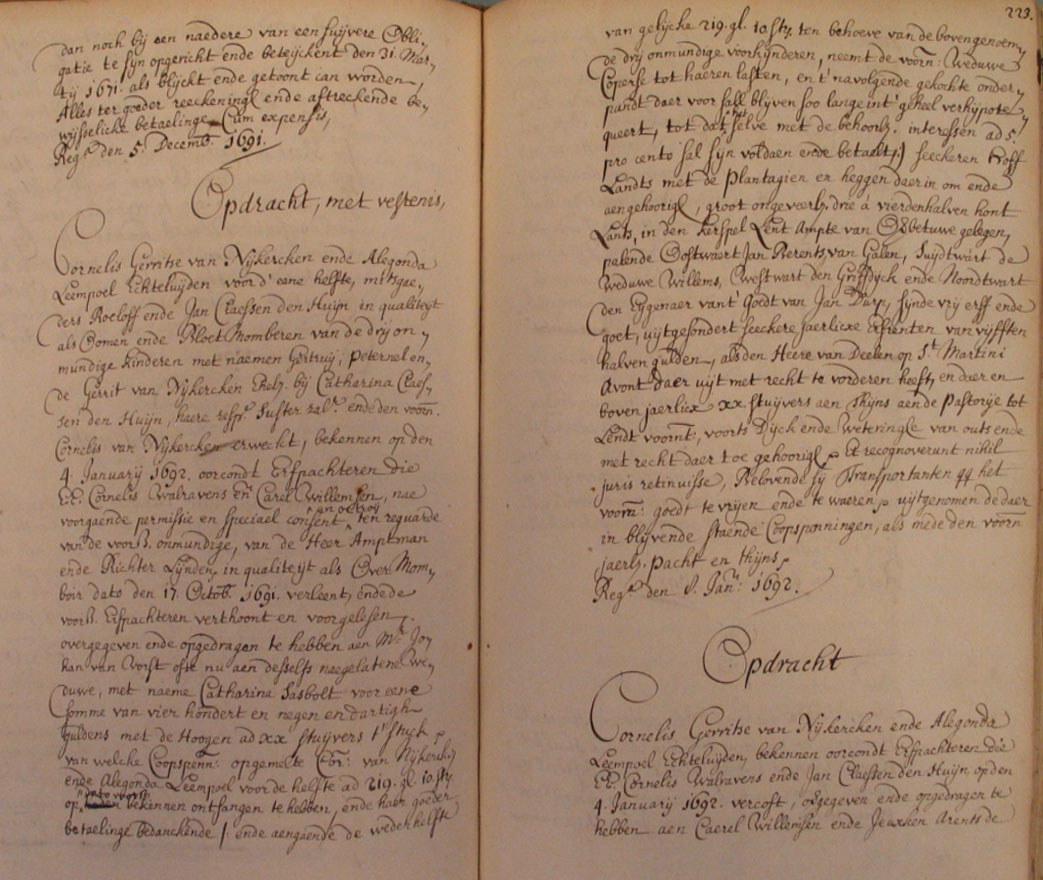 dan noch bij een naedere van een suijvere Obli,
gatie te sijn opgericht ende beteijckent den 31. Mar,
tij 1671. als blijckt ende getoont can worden,
Alles ter goeder reeckeningh ende aftreckende be,
wijsselicke betaelinge Cum expensis,
Regt den 5. Decemb. 1691.
Opdracht, met vestenis,
Cornelis Gerritse van Nijkercken ende Alegonda
Leempoel Echteluijden voor d'eene helfte, mitsgae,
ders Roeloff ende Jan Claessen den Huijn in qualiteijt
als Oomen ende Bloet Momberen van de drij on,
mundige kinderen met naemen Geertruij, Peternel en,
de Gerrit van Nijkercken Ehelz. bij Catharina Claes,
sen den Huijn, haere resp. Suster zalr. ende den voorn.
Cornelis van Nijkercken erweckt, bekennen op den
4. Januarij 1692. oorcondt Erfpachteren die
E.E. Cornelis Walravens en Carel Willemsen, nae
voorgaende permissie en speciael consent en octroij ten reguarde
van de voorß. onmundige, van de Heer Amptman
ende Richter Lijnden, in qualiteijt als Over Mom,
boir dato den 17. Octob. 1691. verleent, ende de
voorß. Erfpachteren verthoont en voorgelesen,
overgegeven ende opgedragen te hebben aen Mr. Jo,
han van Vorst ofte nu aen desselfs naegelatene We,
duwe, met naeme Catharina Sasbolt voor eene
somme van vier hondert en negen en dartigh
guldens met de Hoogen ad xx stuijvers t' stuck
van welche Coopspenn: opgemelte Cor: van Nijkerck
ende Alegonda Leempoel voor de helfte ad 219. gl. 10. sty.
op bekennen ontfangen te hebben, ende haer goeder
betaelinge bedanckende /. ende aengaende de weder helfte
223.
van gelijcke 219. gl. 10. sty. ten behoeve van de bovengenoem,
de drij onmundige voorkijnderen, neemt de voorn: Weduwe
Coperse tot haeren lasten, en t' navolgende gekochte onder,
pandt daer voor sall blijven soo lange int' geheel verhijpote,
queert, tot dat selve met de behoorlz. interessen ad 5.
pro cento sal sijn voldaen ende betaelt,) seeckeren hoff
Landts met de Plantagien en heggen daer in om ende
aengehoorigh, groot ongeveerlz. drie à vierdenhalven hont
Lants, in den kerspel Lent Ampte van Overbetuwe gelegen,
palende Oostwaert Jan Berents van Galen, Suijdtwart de
Weduwe Willems, Westwart den Griftdijck ende Noordtwart
den Eijgenaer vant' Goedt van Jan Purp, sijnde vrij erff ende
goet, uijtgesondert seeckere jaerlicxe Erfrenten van vijfften
halven gulden, als den Heere van Deelen op St. Martini
Avont daer uijt met recht te vorderen heeft, en daer en
boven jaerlicx xx stuijvers aen Thijns aen de Pastorije tot
Lendt voornt, voorts Dijck ende Weteringh van outs ende
met recht daer toe gehoorigh. Et recognoverunt nihil
juris retinuisse, Belovende sij Transportanten qq het
voorn: goedt te vrijen ende te waeren, uijtgenomen de daer
in blijvende staende Coopspenningen, als mede den voorn
jaerlz. Pacht en thijns.
Regt den 8. Janr: 1692.
Opdracht
Cornelis Gerritse van Nijkercken ende Alegonda
Leempoel Echteluijden, bekennen oorcondt Erfpachteren die
E.E. Cornelis Walravens ende Jan Claessen den Huijn, op den
4. Januarij 1692. vercoft, overgegeven ende opgedragen te
hebben aen Caerel Willemsen ende Jeuxken Arents de